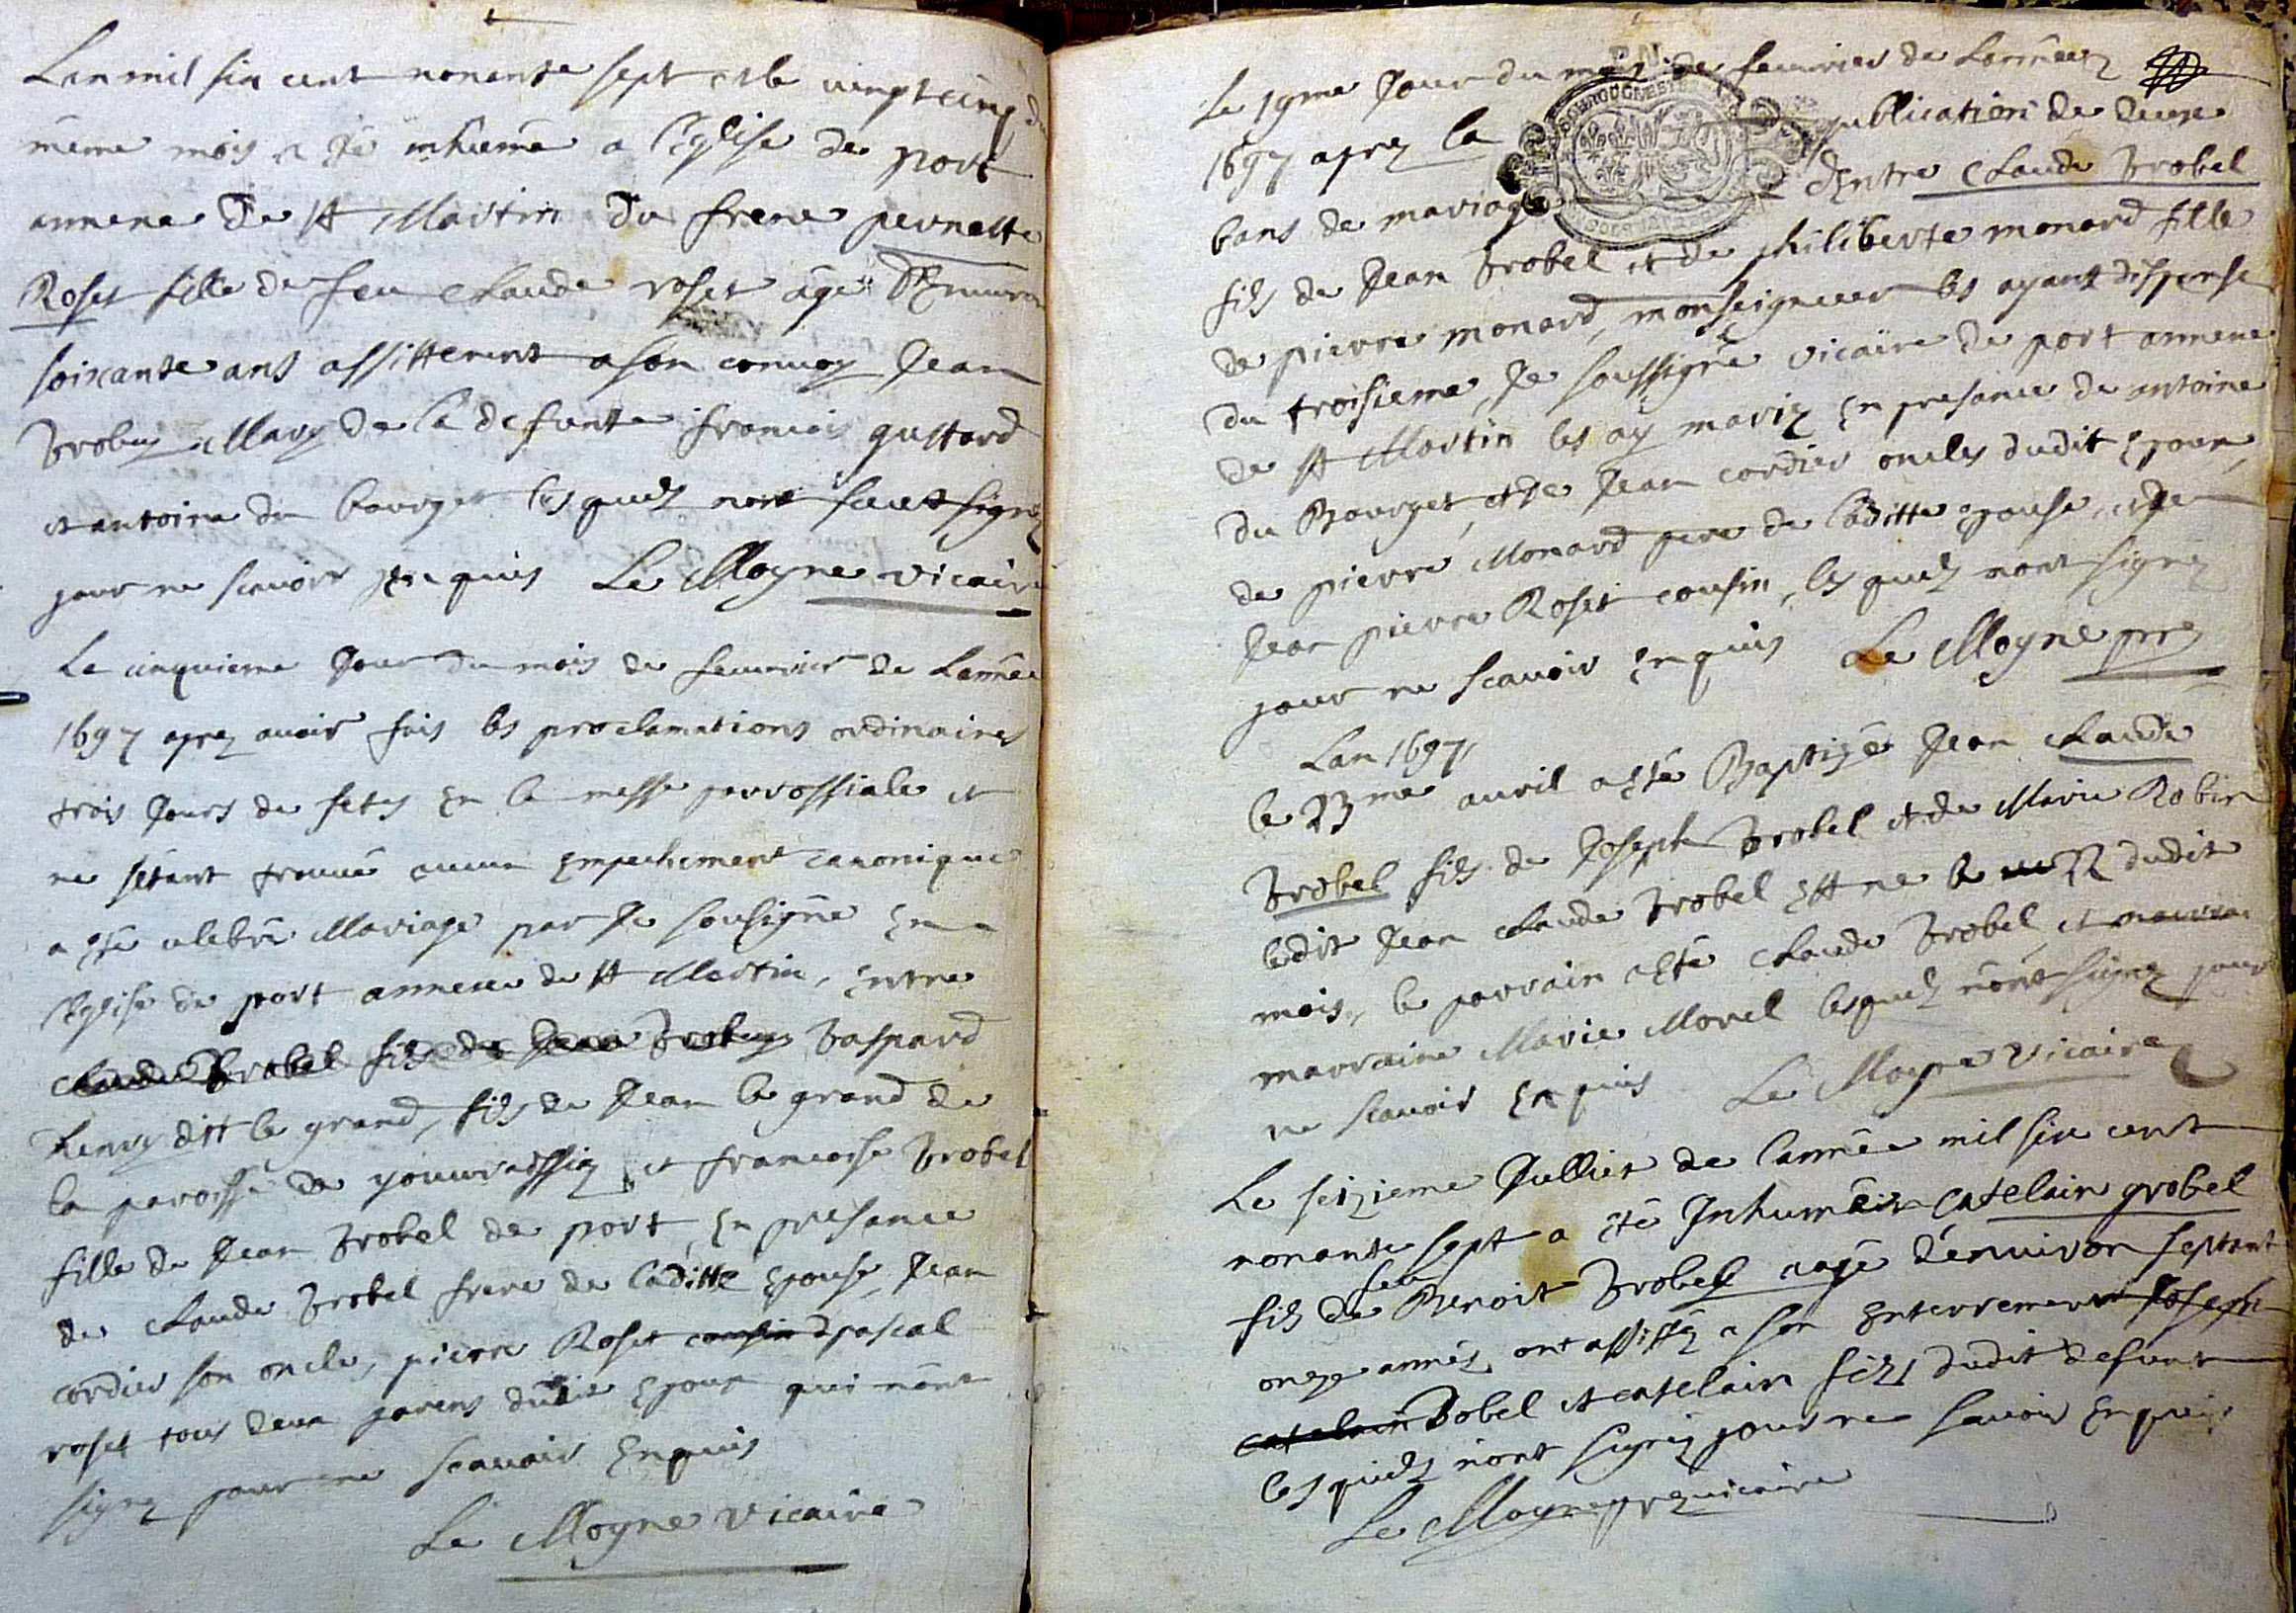 Lan mil six cent nonante sept et le vingt cinq du
même mois a été inhumé a l'Eglise de port
annexe de st Martin du frene pernette
Roset fille de feu Claude roset âgé d'Environ
soixante ans assisterent a son convoy Jean
Brobel Mary de la defunte francois gustard
et antoine du bourget lesquels nont seut signez
pour ne scavoir enquis Le Moyne vicaire
Le cinquieme Jour du mois de feuvrier de Lannée
1697 aprez avoir fais les proclamations ordinaires
trois Jours de fetes en la messe parrossiale et
ne sétant trouvé aucun Empechement canonique
a eté celebré Mariage par Je sousigné En
l'Eglise de port annexe de st Martin, Entre
Claude Brobel fils de Jean Brobel Gaspard
henry dit le grand, fils de Jean le grand de
la paroisse de et francoise Brobel
fille de Jean Brobel de port, En presance
de Claude Brobel frere de laditte Epouse, Jean
cordier son oncle, pierre Roset cousin pascal
roset tous deux parens dudit Epoux qui nont
signez pour ne scavoir Enquis
Le Moyne vicaire
Le 19me Jour du mois de feuvrier de Lannéez
1697 aprez la publication de deux
bans de mariage dEntre Claude Brobel
fils de Jean Brobel et de philiberte monard fille
de pierre monard, monseigneur les ayant dispense
du troisieme, Je soussigné vicaire de port annexe
de st Martin les ay mariez En presance de antoine
du Bourget, et de Jean cordier oncles dudit Epoux,
de pierre Monard pere de laditte epouse, et de
Jean pierre Roset cousin, lesquels nont signez
pour ne scavoir Enquis Le Moyne pre
Lan 1697,
le 23me avril a Eté Baptizé Jean Claude
Brobel fils de Joseph Brobel et de Marie Robin
ledit Jean Claude Brobel Est ne le 22 dudit
mois, le parrain a Eté Claude Brobel, et
marraine Marie Morel lesquels nont signez pour
ne scavoir Enquis Le Moyne vicaire
Le seizieme Jullier de lannée mil six cent
nonante sept a été Inhumé Catelain grobel
fils de feu Benoit Brobel, aagé d'environ septant
onze années, ont assisté a son Enterrement Joseph
catelain Bobel et catelain fils dudit defunt
lesquels n'ont signez pour ne savoir Enquis
Le Moyne pre vicaire